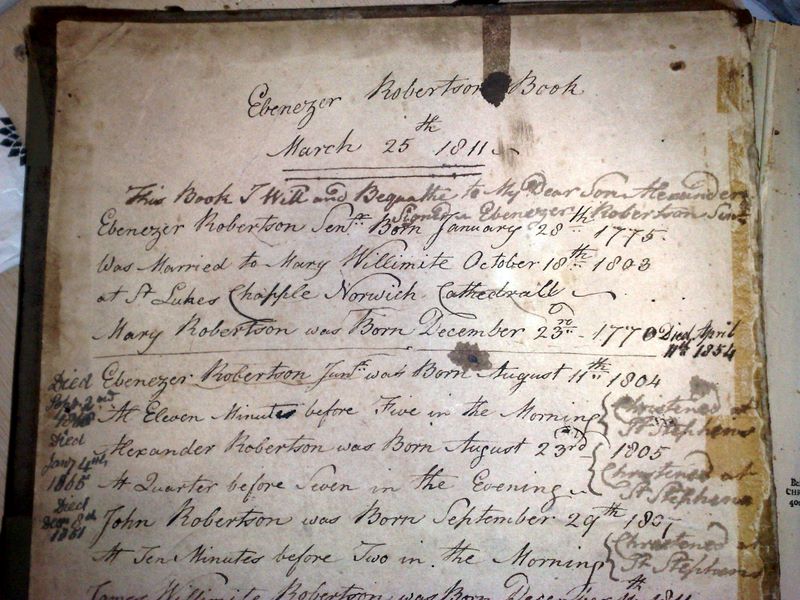 Ebenezer Robertson Book
March 25th 1811
This Book I Will and Bequathe to My Dear Son Alexander
Signed Ebenezer Robertson Sinr
Ebenezer Robertson Senr Born January 28th 1775.
Was Married to Mary Willimite October 18th 1803
at St Lukes Chapple Norwich Cathedrall
Mary Robertson was Born December 23rd 1770 Died April
11th 1854
Ebenezer Robertson Junr was Born August 11th 1804
Died
2nd
At Eleven Minutes before Five in the Morning Christened at
St Stephens
Alexander Robertson was Born August 23rd 1805
Died
Jany 4th
1866
At Quarter before Seven in the Evening Christened at
St Stephens
John Robertson was Born September 29th 1807
Died
Decr 8th
1851
At Ten Minutes before Two in the Morning Christened at
St Stephens
James Willimite Robertson was Born December